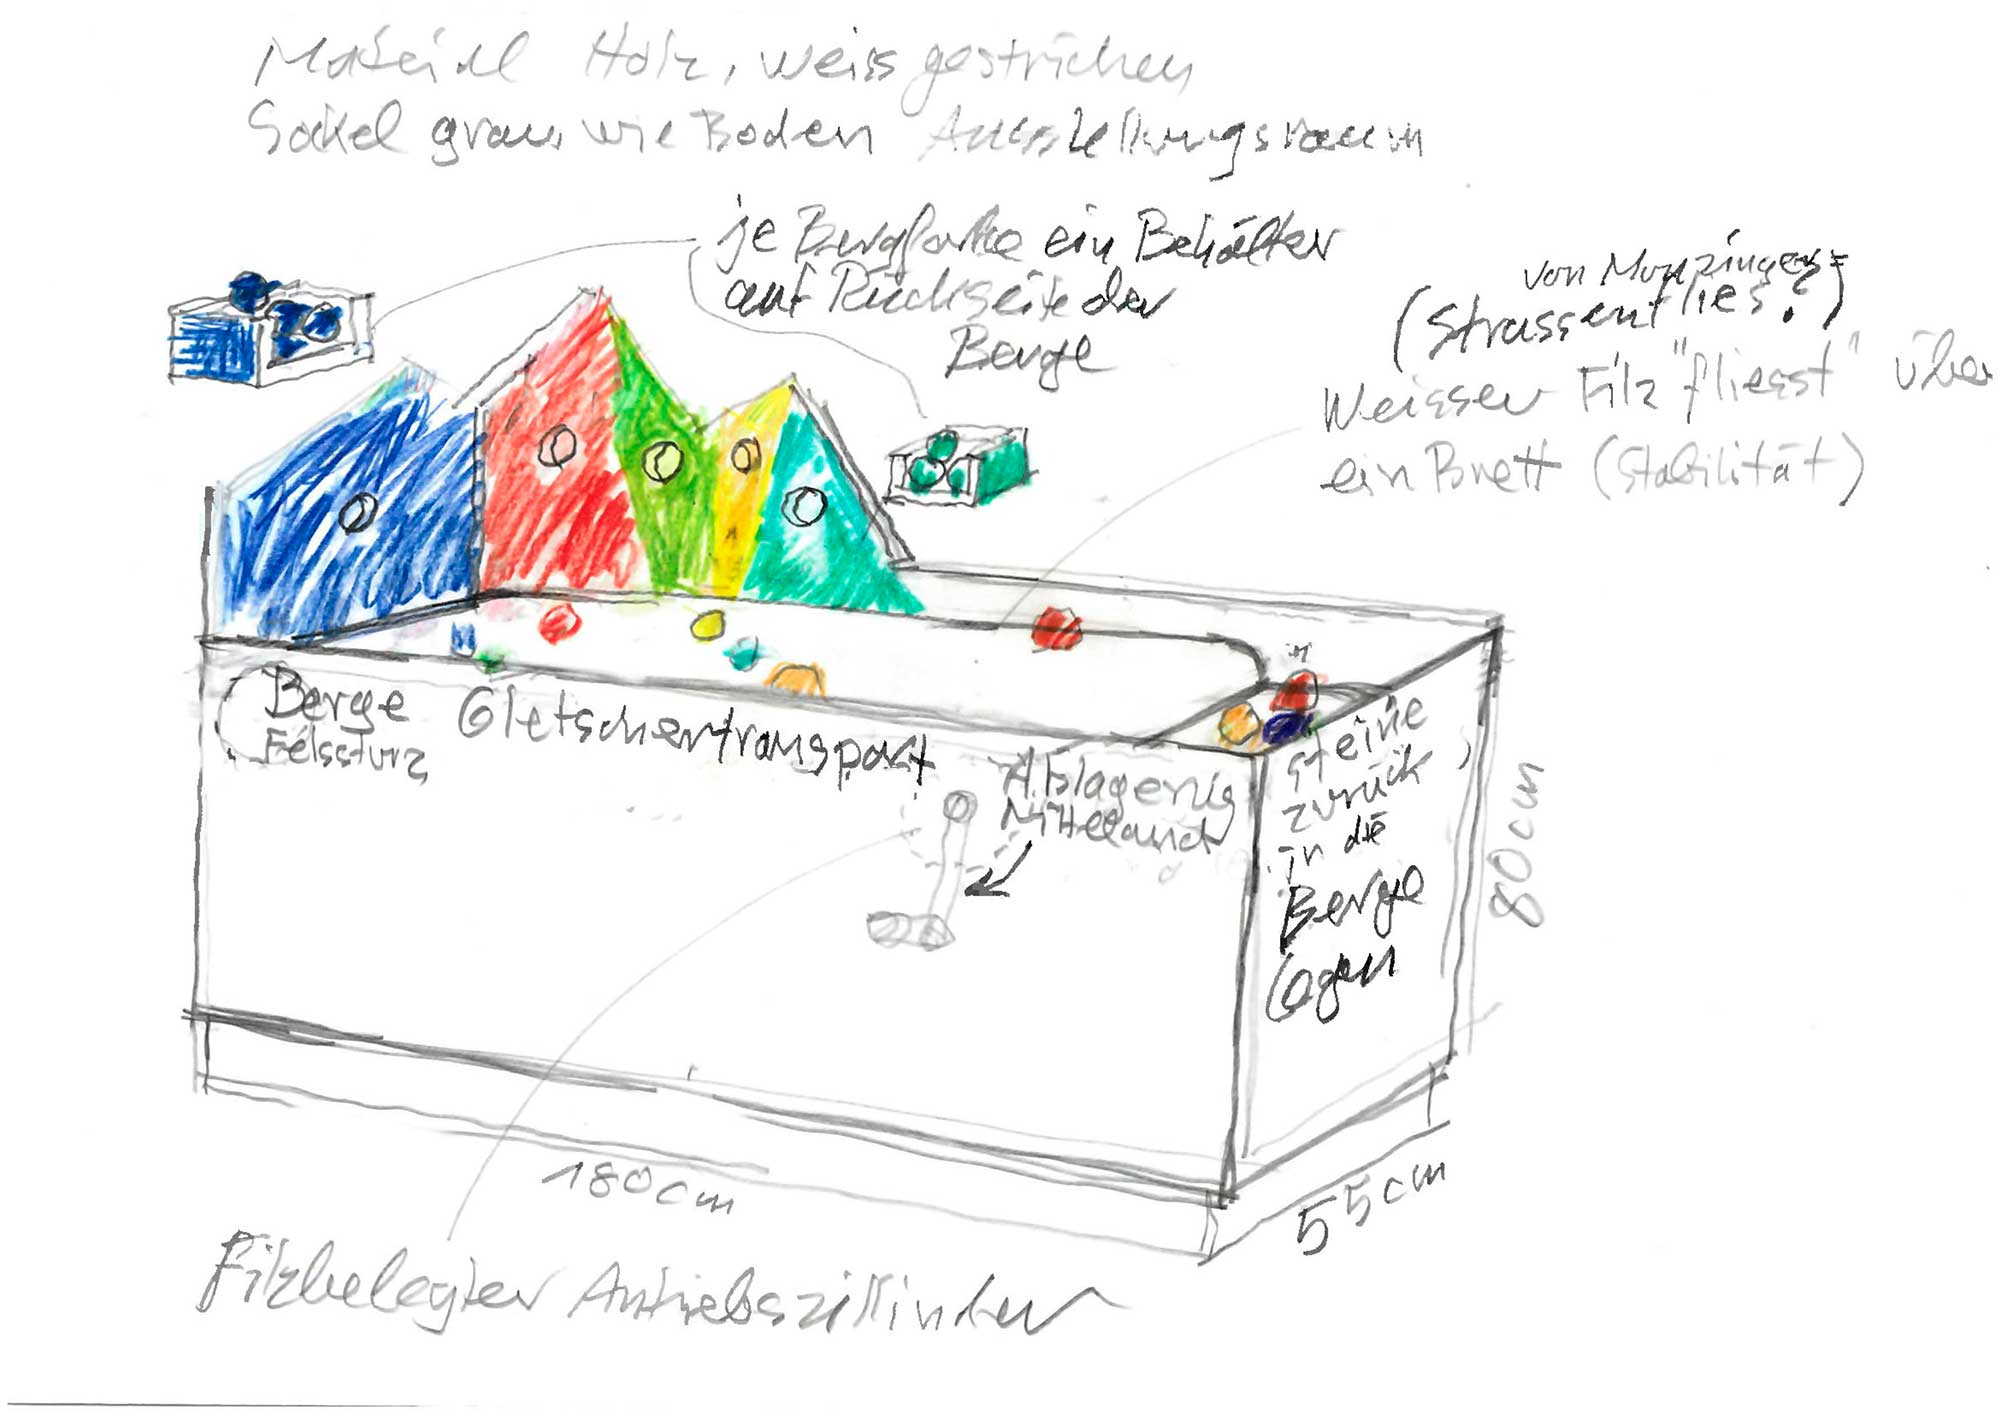 Material Holz, weiss gestrichen
Sockel grau wie Boden Ausstellungsraum
je Bergfarbe ein Behälter
auf Rückseite der
Berge
von
(Strassenflies?)
Weisser Filz "fliesst" über
ein Brett (Stabilität)
Berge
Felssturz
Gletschertransport
Ablagerung
Mittelland
steine
zurück
in die
Berge
legen
80cm
180cm
55cm
Filzbelegter Antriebszillinder